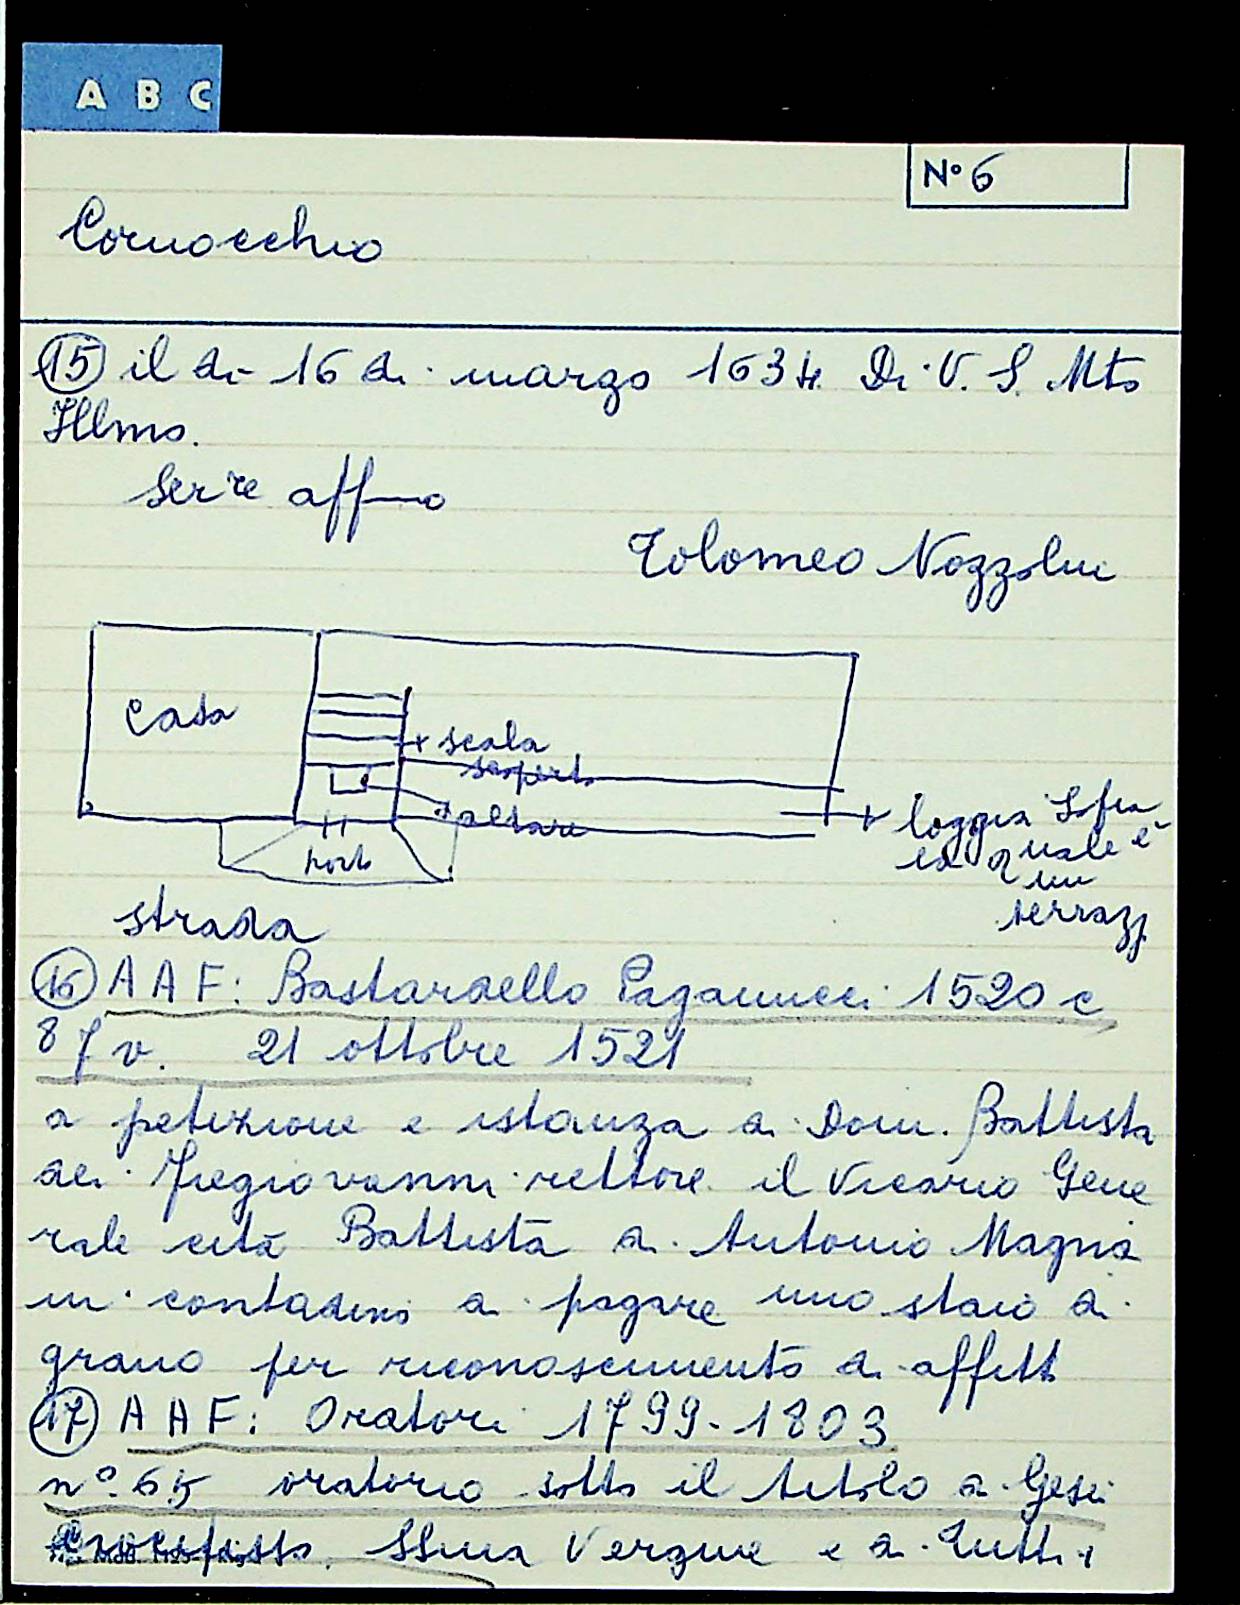 A B C
N° 6
Cornocchio
15 il dì 16 di marzo 1634 Di V. S. Mto
Illmo.
Serre affmo
Tolomeo Nozzolini
casa
scala
scoperta
altare
porta
loggia sopra
la quale è
un
terrazz
strada
16 AAF: Bastardello Pagannucci 1520 c
87 v. 21 ottobre 1521
a petizione e istanza di Dom. Battista
dei Fregiovanni rettore il Vicario Gene
rale cita Battista di Antonio Magna
ni contadino a pagare uno staio di
grano per riconoscimento di affitt
17 AAF: Oratori 1799-1803
n° 65 oratorio sotto il titolo di Gesù
Crocifisso, SSma Vergine e di Tutti i